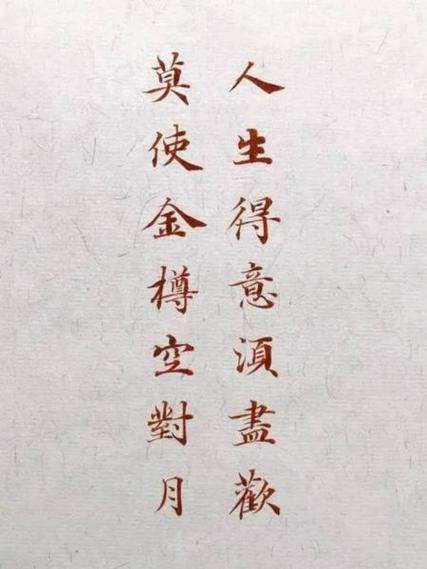 人生得意須盡歡
莫使金樽空對月